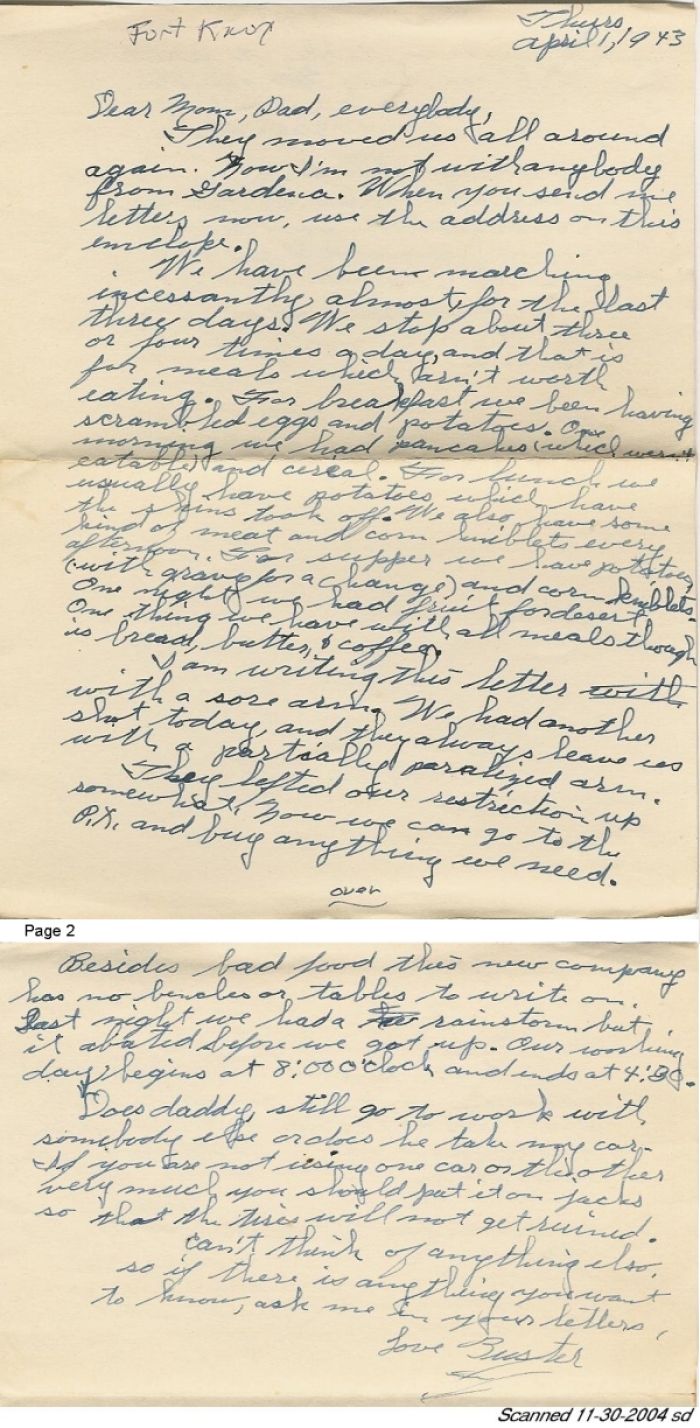 Fort Knox
Thurs,
April 1, 1943
Dear Mom, Dad, everybody,
They moved us all around
again. Now I'm not with anybody
from Gardena. When you send me
letters now, use the address on this
envelope.
We have been marching
incessanthy, almost, for the last
three days. We stop about three
or four times a day, and that is
for meals which arn't worth
eating. For breakfast we been having
scrambled eggs and potatoes. One
morning we had pancakes (which weren't
eatable) and cereal. For lunch we
usually have potatoes which have
the skins took off. We also have some
kind of meat and corn kniblets every
afternoon. For supper we have potatoes
(with gravy for a change) and corn kniblets.
One night we had fruit for desert.
One thing we have with all meals though
is bread, butter, & coffee.
I am writing this letter with
with a sore arm. We had another
shot today, and they always leave us
with a partially paralized arm.
They lifted our restriction up
somewhat. Now we can go to the
P.X. and buy anything we need.
over
Page 2
Besides bad food this new company
has no benches or tables to write on.
Last night we had a rainstorm but
it abated before we got up. Our working
day begins at 8:00 o'clock and ends at 4:30.
Does daddy still go to work with
somebody else or does he take my car.
If you are not using one car or the other
very much you should put it on jacks
so that the tires will not get ruined.
Can't think of anything else,
so if there is anything you want
to know, ask me in your letters,
Love Buster
Scanned 11-30-2004 sd